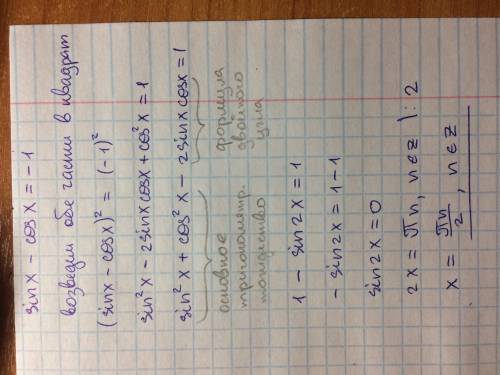 sin x - cos x = -1
возведем обе части в квадрат
(sin x - cos x)² = (-1)²
sin² x - 2 sin x cos x + cos² x = 1
sin² x + cos² x - 2 sin x cos x = 1
основное формула
тригонометр. двойного
тождество угла
1 - sin 2x = 1
- sin 2x = 1 - 1
sin 2x = 0
2x = πn, n ∈ z | : 2
x = πn/2, n ∈ z